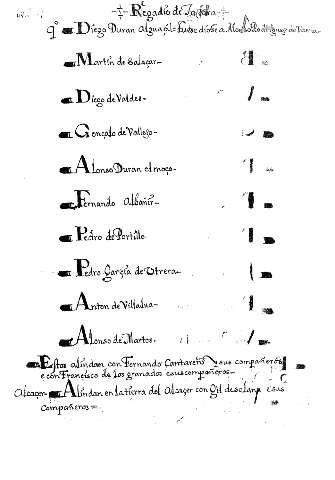 Regadio de Jasara
9º Diego Duran Alguazil fuese diose a Alonso Rodriguez de
Martin de Salaçar - 1
Diego de Valdes - 1
Gonçalo de Vallejo -
Alonso Duran el moço - 1
Fernando Albañir - 1
Pedro de Portillo 1
Pedro Garçia de Utrera - 1
Anton de Villalua - 1
Alonso de Martos - 1
Estos alindan con Fernando Cantareño y sus compañeros
e con Francisco de los granados e sus compañeros -
Alcaçer - Alindan en la tierra del Alcaçer con Gil de e sus
compañeros -